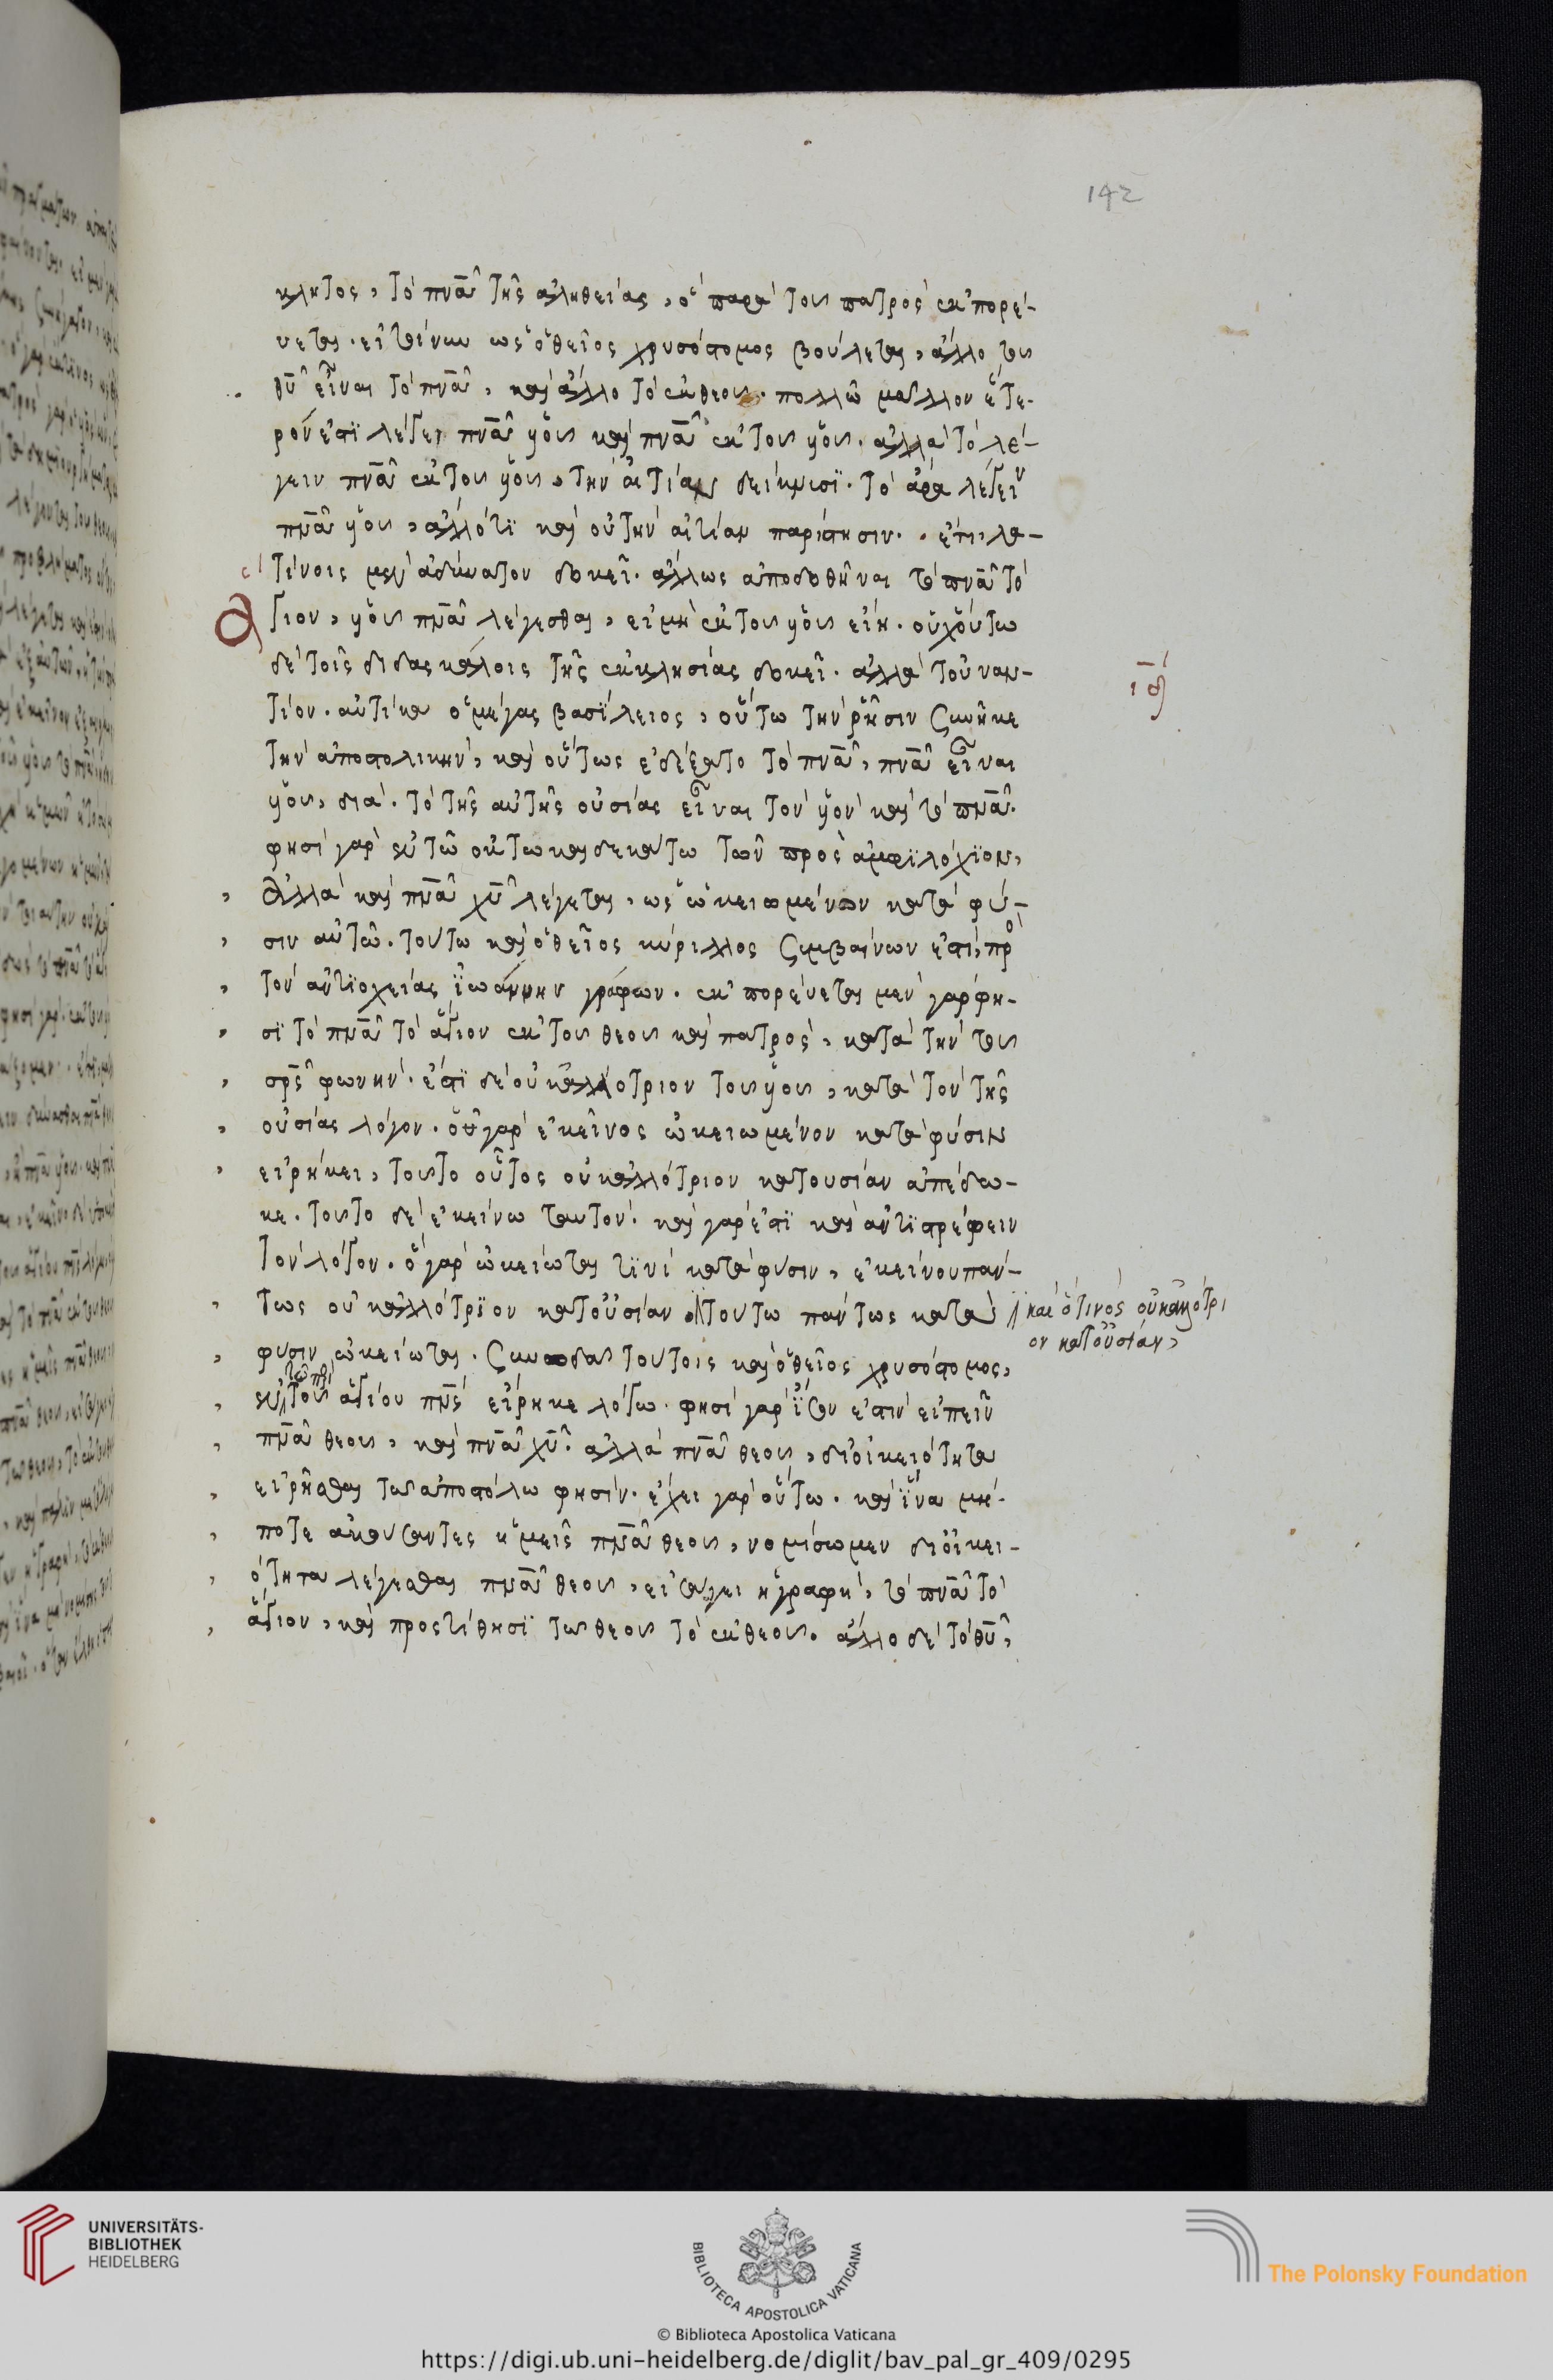 142
κλητος, τὸ πνᾶ τῆς ἀληθείας, ὃ παρὰ τοῦ πατρὸς ἐκπορεύ-
υεται. εἰ τοίνυν ὡς ὁ θεῖος χρυσόστομος βούλεται, ἄλλο τοῦ
θῦ εἶναι τὸ πνᾶ, καὶ ἄλλο τὸ ἐκ θεοῦ. πολλῶ μᾶλλον ἕτε-
ρόν ἐστι λέγειν πνᾶ υἱοῦ καὶ πνᾶ ἐκ τοῦ υἱοῦ. ἀλλὰ τὸ λέ-
γειν πνᾶ ἐκ τοῦ υἱοῦ, τὴν αἰτίαν δείκνυσι. τὸ ἄρα λέγειν
πνᾶ υἱοῦ, ἄλλό τι καὶ οὐ τὴν αἰτίαν παρίστησιν. ἔτι, λα-
τίνοις μὲν ἀδύνατον δοκεῖ. ἄλλως ἀποδοθῆναι τὸ πνᾶ τὸ
ἅγιον, υἱοῦ πνᾶ λέγεσθαι, εἰ μὴ ἐκ τοῦ υἱοῦ εἴη. οὐχ οὕτω
δὲ τοῖς διδασκάλοις τῆς ἐκκλησίας δοκεῖ. ἀλλὰ τοὐναν-
ια
τίον. αὐτίκα ὁ μέγας βασίλειος, οὕτω τὴν ῥῆσιν συνῆκε
τὴν ἀποστολικὴν, καὶ οὕτως ἐδέξατο τὸ πνᾶ, πνᾶ εἶναι
υἱοῦ, διὰ. τὸ τῆς αὐτῆς οὐσίας εἶναι τὸν υἱὸν καὶ τὸ πνᾶ.
φησὶ γὰρ ἐν τῶ ὀκτωκαιδεκάτω τῶν πρὸς ἀμφιλόχιον,
ἀλλὰ καὶ πνᾶ χῦ λέγεται, ὡς ὠκειωμένον κατὰ φύ-
σιν αὐτῶ. τούτω καὶ ὁ θεῖος κύριλλος συμβαίνων ἐστὶ, πρὸ
τὸν ἀντιοχείας ἰωάννην γράφων. ἐκπορεύεται μὲν γὰρ φη-
σὶ τὸ πνᾶ τὸ ἅγιον ἐκ τοῦ θεοῦ καὶ πατρὸς, κατὰ τὴν τοῦ
σρς φωνὴν. ἔστι δὲ οὐκ ἀλλότριον τοῦ υἱοῦ, κατὰ τὸν τῆς
οὐσίας λόγον. ὅπερ γὰρ ἐκεῖνος ὠκειωμένον κατὰ φύσιν
εἰρήκει, τοῦτο οὗτος οὐκ ἀλλότριον κατουσίαν ἀπέδω-
κε. τοῦτο δὲ ἐκείνω ταυτὸν. καὶ γὰρ ἔστι καὶ ἀντιστρέφειν
τὸν λόγον. ὃ γὰρ ὠκείωται τινὶ κατὰ φύσιν, ἐκείνου πάν-
τως οὐκ ἀλλότριον κατοὐσίαν τούτω πάντως κατὰ
καὶ ὅ τινὸς οὐκ ἀλλότρι
ον κατοὐσίαν,
φύσιν ὠκείωται. συνωδὰ τούτοις καὶ ὁ θεῖος χρυσόστομος,
τῶ περὶ
ἐν τοῦ ἁγίου πνς εἴρηκε λόγω. φησὶ γὰρ ἴσον ἐστὶν εἰπεῖν
πνᾶ θεοῦ, καὶ πνᾶ χῦ. ἀλλὰ πνᾶ θεοῦ, δι οἰκειότητα
εἰρῆσθαι τῶ ἀποστόλω φησίν. ἔχει γὰρ οὕτω. καὶ ἵνα μή-
ποτε ἀκούσαντες ἡμεῖς πνᾶ θεοῦ, νομίσωμεν δι οἰκει-
ότητα λέγεσθαι πνᾶ θεοῦ, εἰσάγει ἡ γραφὴ, τὸ πνᾶ τὸ
ἅγιον, καὶ προστίθησι τῶ θεοῦ τὸ ἐκ θεοῦ. ἄλλο δὲ τὸ θῦ,
UNIVERSITÄTS-
BIBLIOTHEK
HEIDELBERG
BIBLIOTECA APOSTOLICA VATICANA
The Polonsky Foundation
© Biblioteca Apostolica Vaticana
https://digi.ub.uni-heidelberg.de/diglit/bav_pal_gr_409/0295